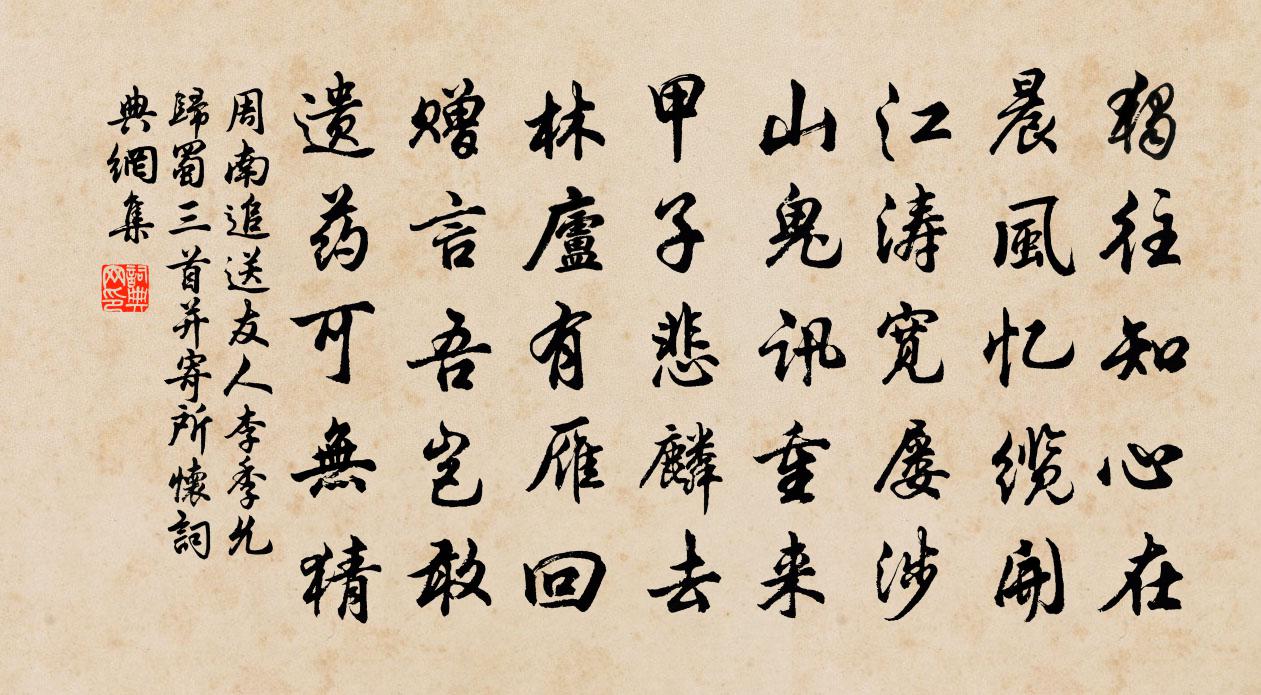 獨往知心在
晨風忆缆開
江涛寬屡涉
山鬼讯重来
甲子悲麟去
林廬有雁回
赠言吾岂敢
遗药可無猜
周南追送友人李季允
歸蜀三首并寄所懷詞
典網集
詞典
网印